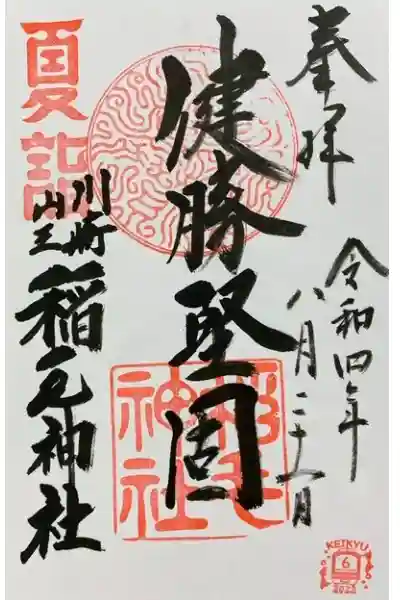 奉拝
令和四年
八月二十一日
健勝堅固
夏詣
川崎
山王
稲毛神社
稲毛
神社
KEIKYU
6
2022